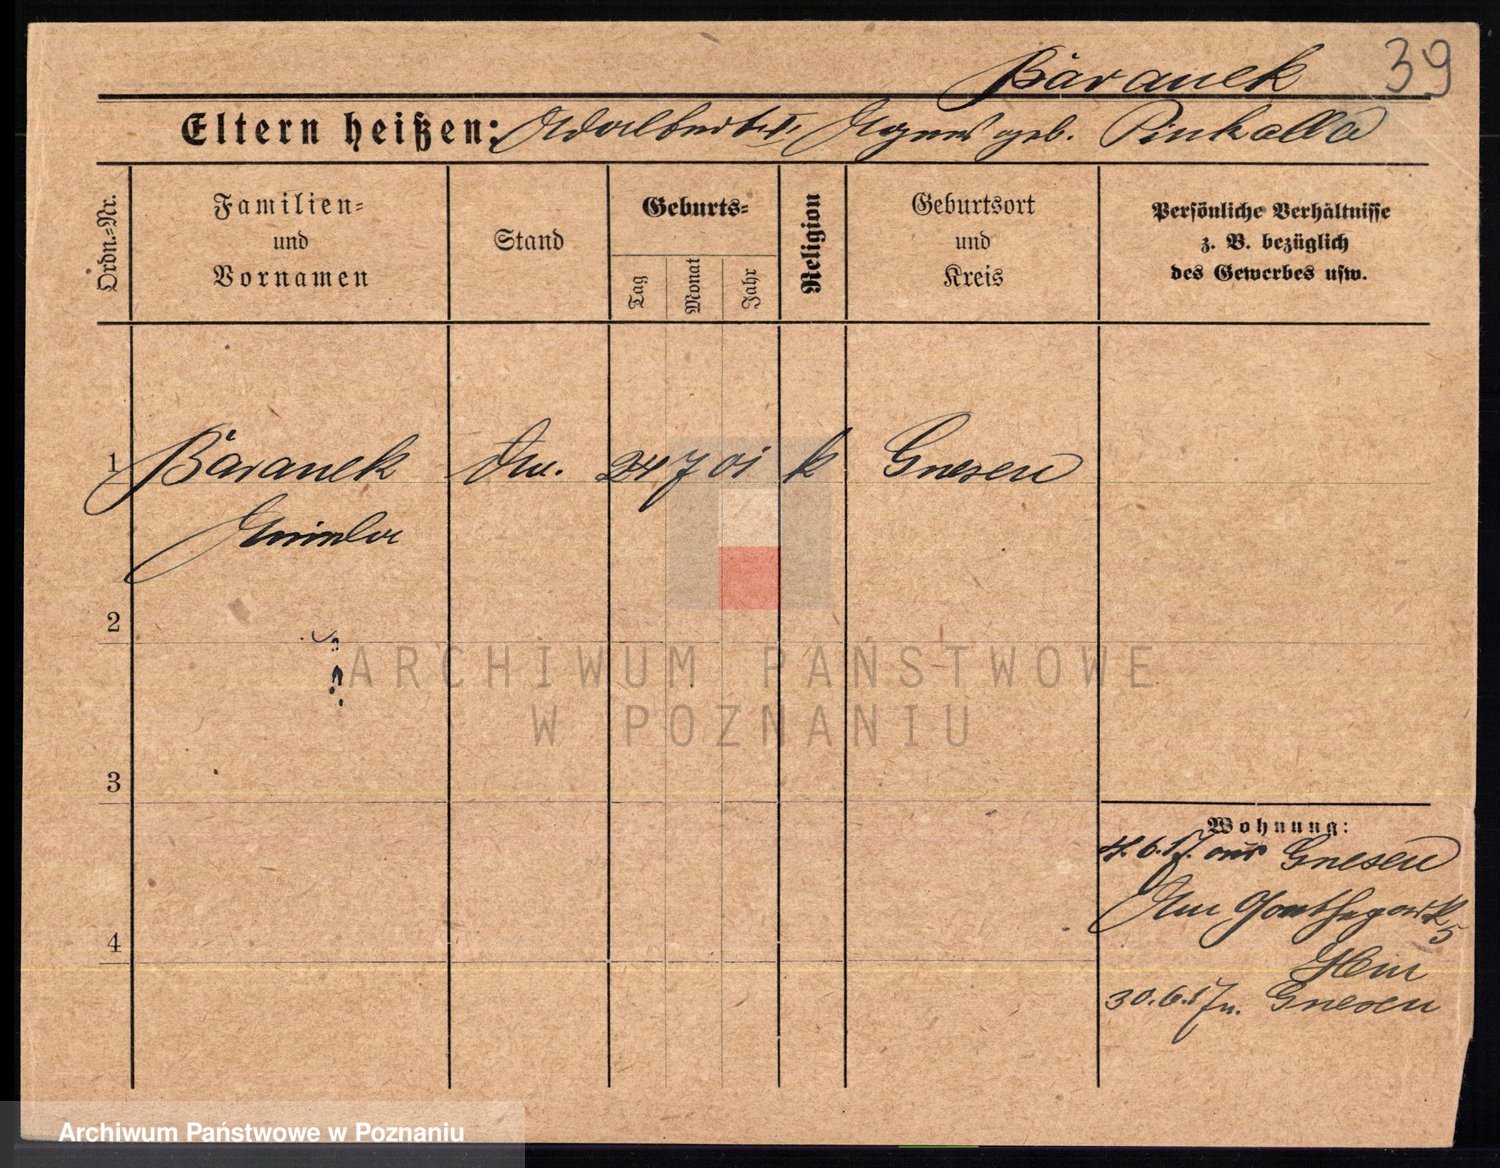 39
Baranek
Eltern heißen: Adalbert u. Agnes geb. Pinkalla
Ordn.=Nr.
Familien=
und
Vornamen
Stand
Geburts=
Tag
Monat
Jahr
Religion
Geburtsort
und
Kreis
Persönliche Verhältnisse
z. B. bezüglich
des Gewerbes usw.
1 Baranek 24 7 01 k Gnesen
2
3
4
Wohnung:
4.6.17. aus Gnesen
5
30.6.17 n. Gnesen
ARCHIWUM PAŃSTWOWE
W POZNANIU
Archiwum Państwowe w Poznaniu